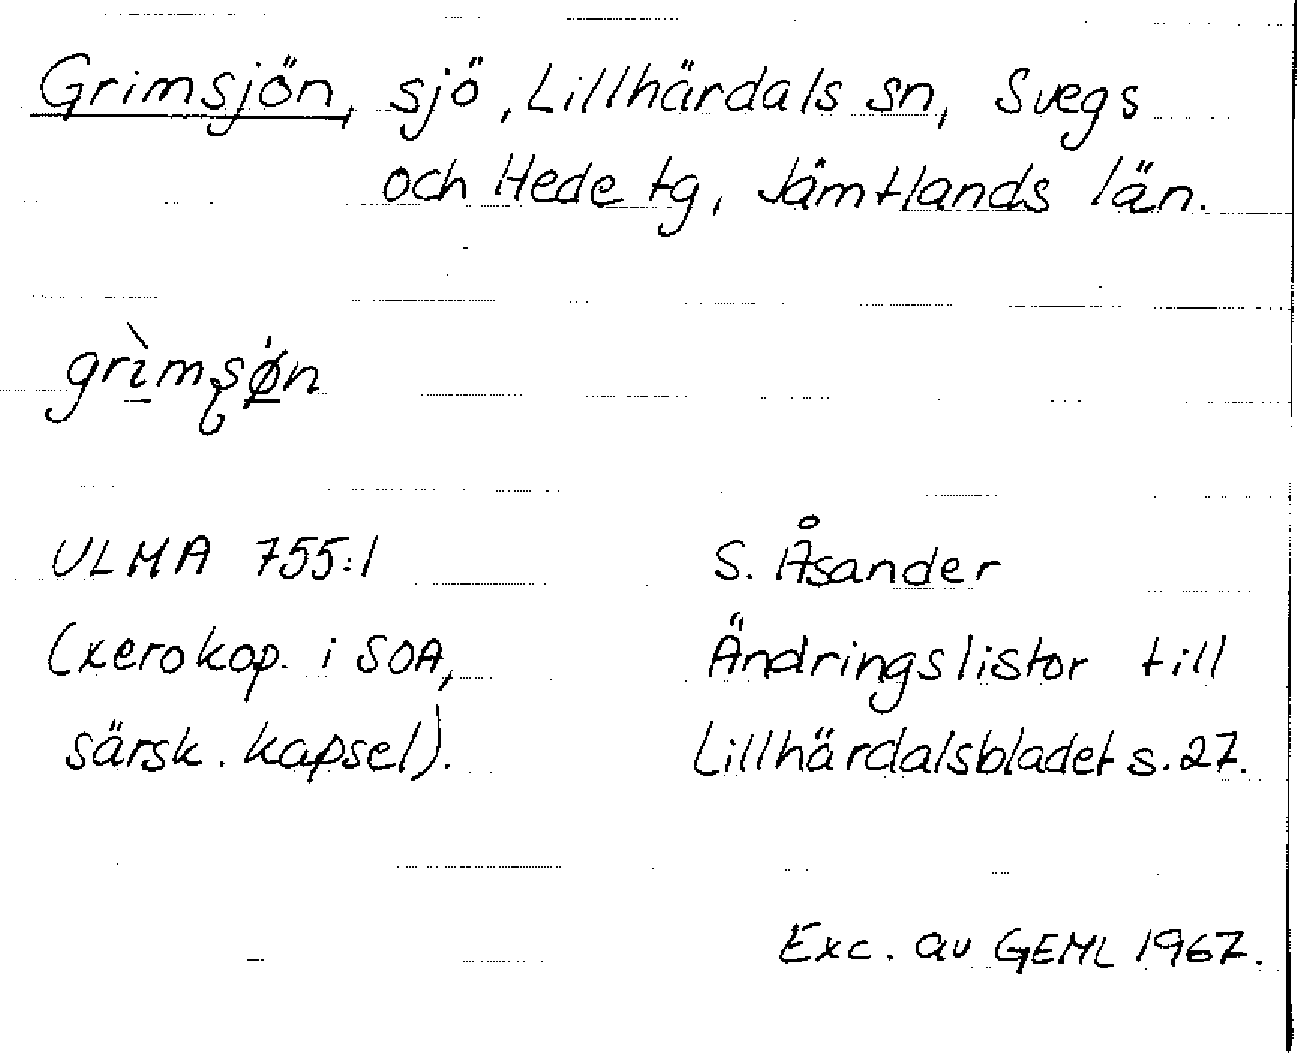 Grimsjön, sjö, Lillhärdals sn, Svegs
och Hede tg, Jämtlands län.
grìmʂø̀n
ULMA 755:1
(xerokop. i SOA,
särsk. kapsel).
S. Åsander
Ändringslistor till
Lillhärdalsbladet s. 27.
Exc. av GEML 1967.